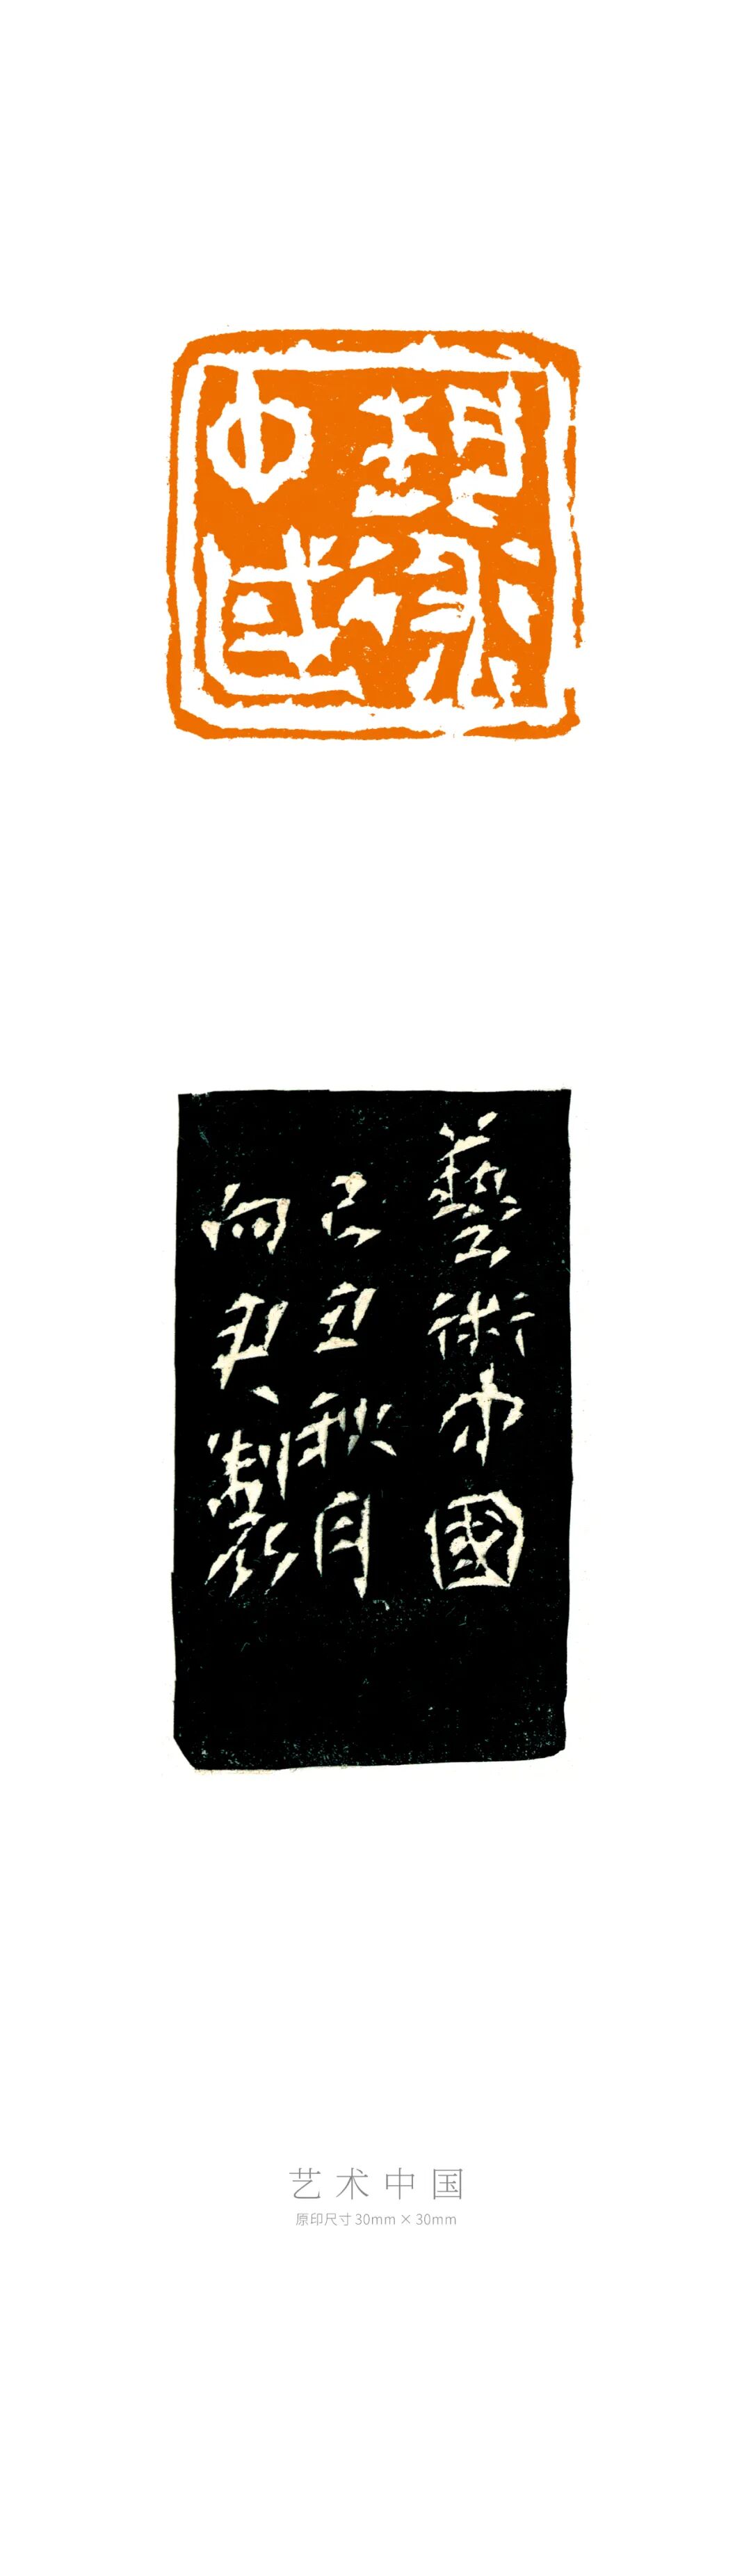 埶術
中國
藝術中國
己丑秋月
向⺕製
艺术中国
原印尺寸 30mm × 30mm